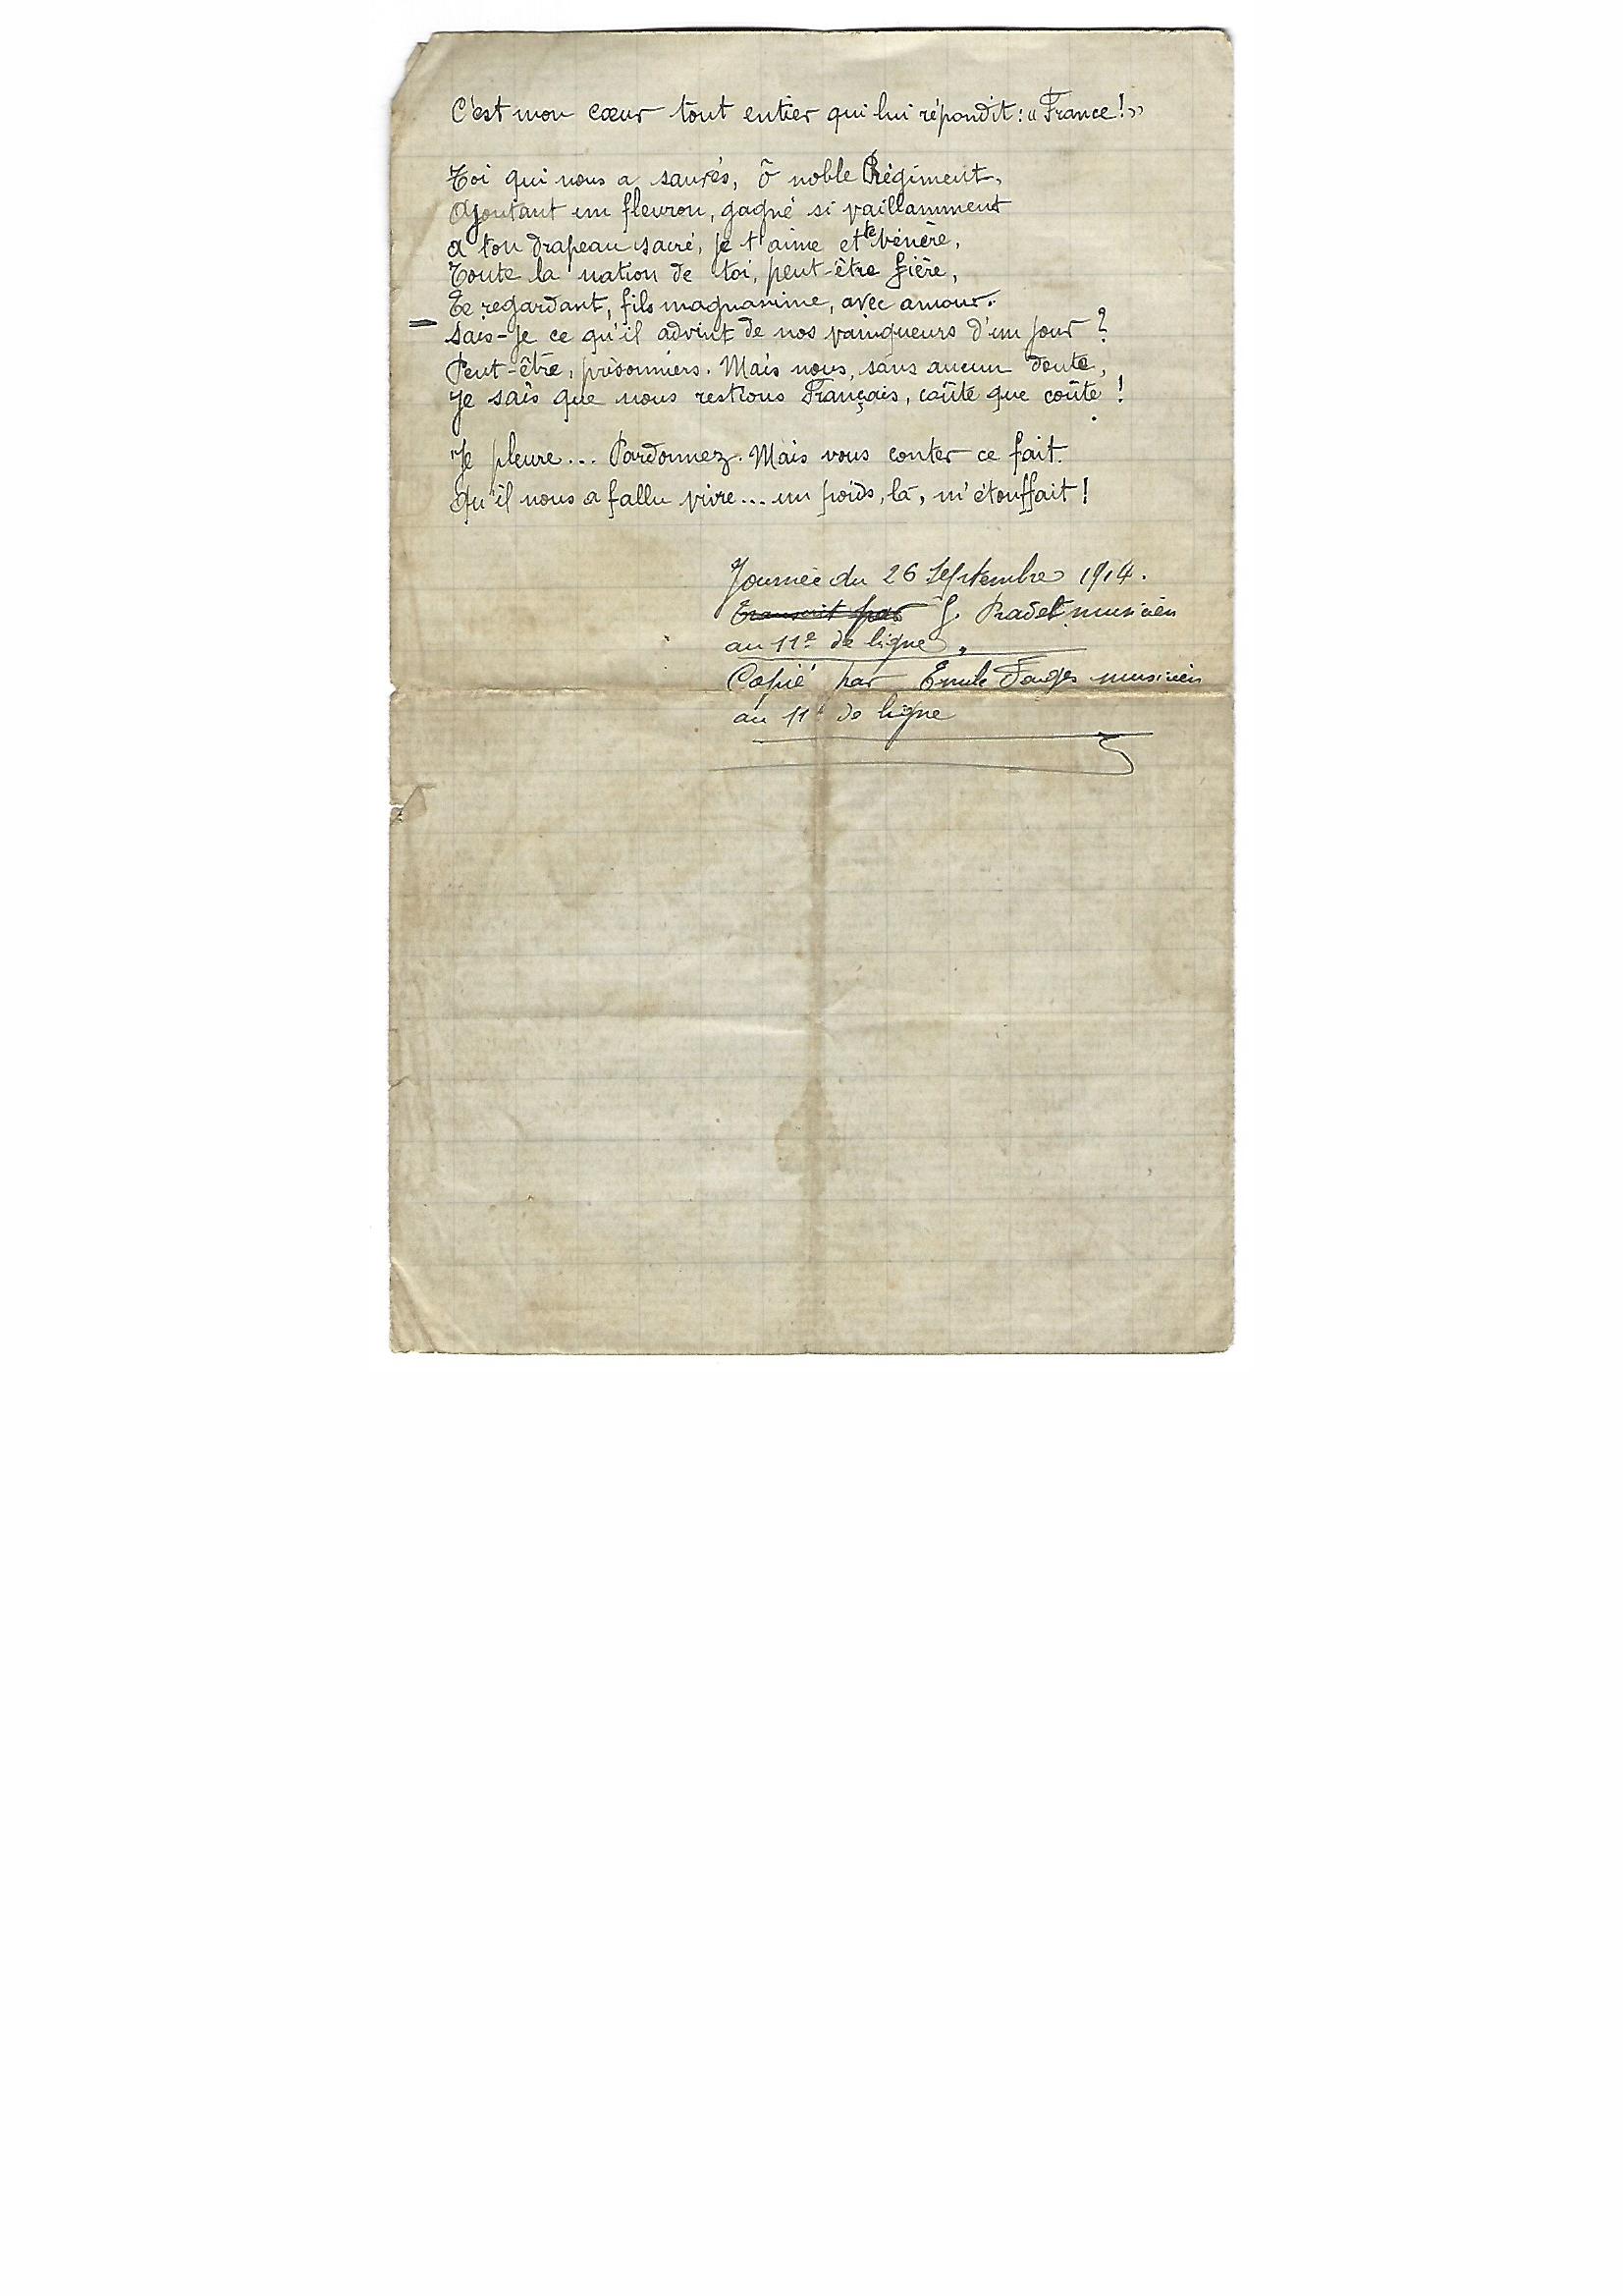 C'est mon cœur tout entier qui lui répondit : « France ! »
Toi qui nous a sauvés, ô noble Régiment,
Ajoutant un fleuron, gagné si vaillamment
a ton drapeau sacré, je t'aime et te vénère,
Toute la nation de toi, peut-être fière,
Te regardant, fils magnanime, avec amour.
Sais-je ce qu'il advint de nos vainqueurs d'un jour ?
Peut-être, prisonniers. Mais nous, sans aucun doute,
Je sais que nous restions Français, coûte que coûte !
Je pleure... Pardonnez. Mais vous conter ce fait.
Qu'il nous a fallu vivre... un poids, là, m'étouffait !
Journée du 26 Septembre 1914.
Transcrit par J. Pradel musicien
au 11e de ligne
Copié par Emile musicien
au 11e de ligne